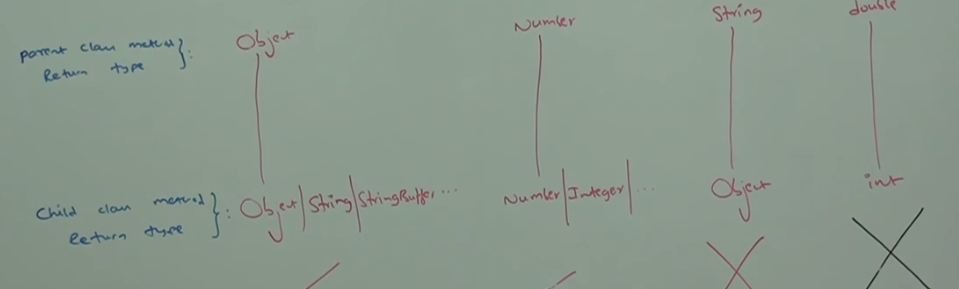 parent class method } :
Return type
Object
Number
String
double
Child class method } :
Return type
Object | String | StringBuffer ...
Number | Integer | ...
Object
int